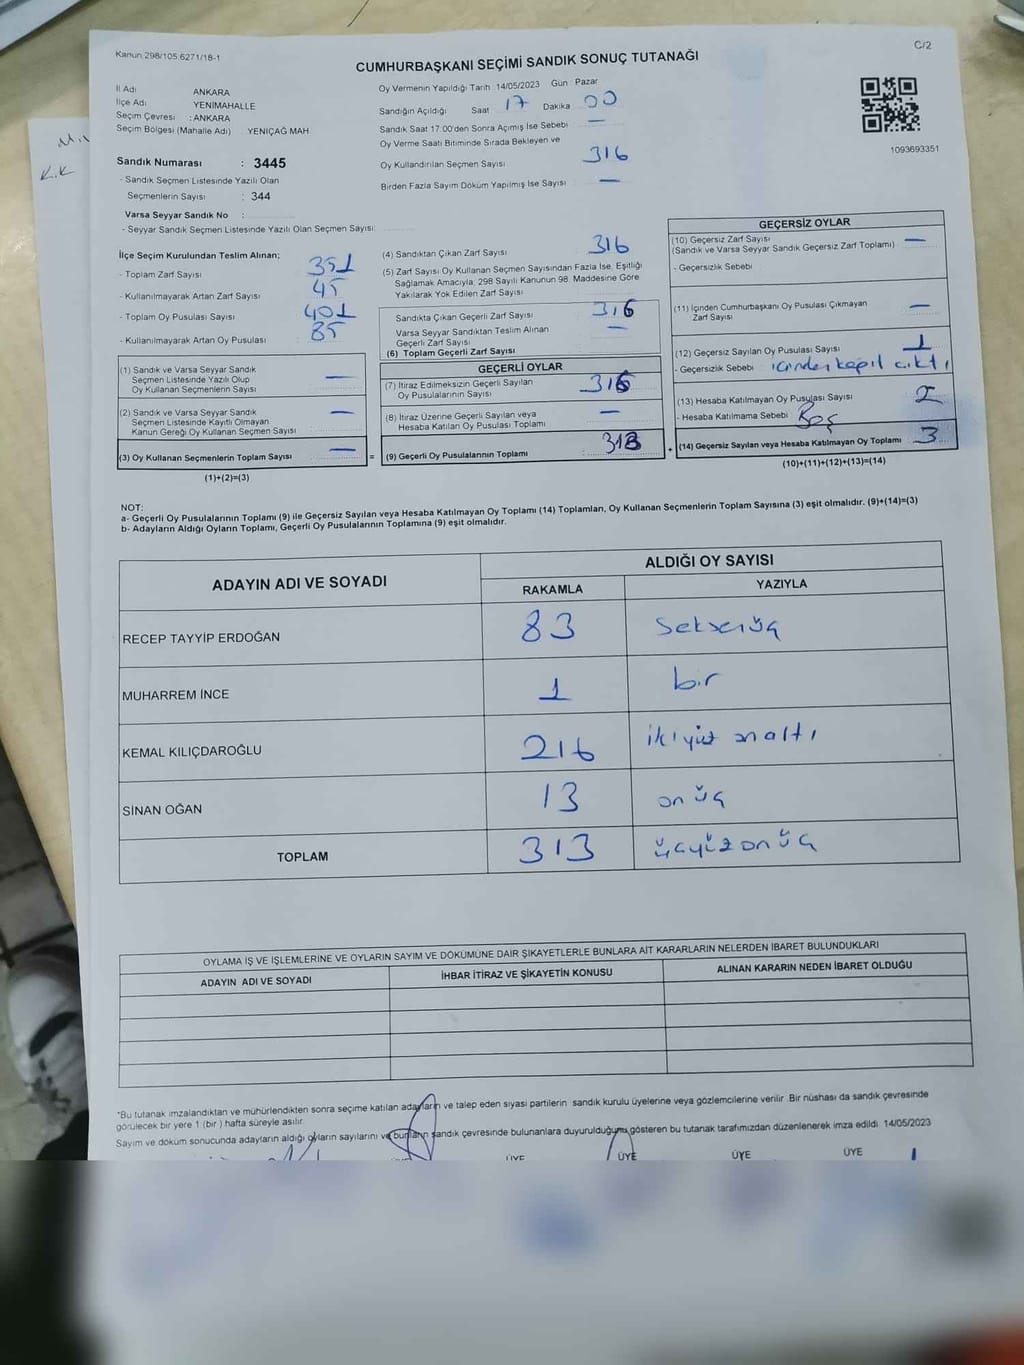 Kanun 298/105 6271/18-1
C/2
CUMHURBAŞKANI SEÇİMİ SANDIK SONUÇ TUTANAĞI
İl Adı ANKARA
İlçe Adı YENİMAHALLE
Seçim Çevresi : ANKARA
Seçim Bölgesi (Mahalle Adı) YENİÇAĞ MAH
Sandık Numarası : 3445
- Sandık Seçmen Listesinde Yazılı Olan
Seçmenlerin Sayısı : 344
Varsa Seyyar Sandık No :
- Seyyar Sandık Seçmen Listesinde Yazılı Olan Seçmen Sayısı
Oy Vermenin Yapıldığı Tarih 14/05/2023 Gün Pazar
Sandığın Açıldığı Saat 17 Dakika 00
Sandık Saat 17:00'den Sonra Açımış İse Sebebi —
Oy Verme Saati Bitiminde Sırada Bekleyen ve
Oy Kullandırılan Seçmen Sayısı 316
Birden Fazla Sayım Döküm Yapılmış İse Sayısı —
1093693351
İlçe Seçim Kurulundan Teslim Alınan;
- Toplam Zarf Sayısı 351
- Kullanılmayarak Artan Zarf Sayısı 45
- Toplam Oy Pusulası Sayısı 401
- Kullanılmayarak Artan Oy Pusulası 85
(1) Sandık ve Varsa Seyyar Sandık
Seçmen Listesinde Yazılı Olup
Oy Kullanan Seçmenlerin Sayısı —
(2) Sandık ve Varsa Seyyar Sandık
Seçmen Listesinde Kayıtlı Olmayan
Kanun Gereği Oy Kullanan Seçmen Sayısı —
(3) Oy Kullanan Seçmenlerin Toplam Sayısı —
(1)+(2)=(3)
(4) Sandıktan Çıkan Zarf Sayısı 316
(5) Zarf Sayısı Oy Kullanan Seçmen Sayısından Fazla İse, Eşitliği
Sağlamak Amacıyla; 298 Sayılı Kanunun 98. Maddesine Göre
Yakılarak Yok Edilen Zarf Sayısı
Sandıkta Çıkan Geçerli Zarf Sayısı 316
Varsa Seyyar Sandıktan Teslim Alınan
Geçerli Zarf Sayısı —
(6) Toplam Geçerli Zarf Sayısı
GEÇERLİ OYLAR
(7) İtiraz Edilmeksizin Geçerli Sayılan
Oy Pusulalarının Sayısı
(8) İtiraz Üzerine Geçerli Sayılan veya
Hesaba Katılan Oy Pusulası Toplamı —
(9) Geçerli Oy Pusulalarının Toplamı 313
GEÇERSİZ OYLAR
(10) Geçersiz Zarf Sayısı —
(Sandık ve Varsa Seyyar Sandık Geçersiz Zarf Toplamı)
- Geçersizlik Sebebi
(11) İçinden Cumhurbaşkanı Oy Pusulası Çıkmayan
Zarf Sayısı —
(12) Geçersiz Sayılan Oy Pusulası Sayısı 1
- Geçersizlik Sebebi
(13) Hesaba Katılmayan Oy Pusulası Sayısı 2
- Hesaba Katılmama Sebebi Boş
(14) Geçersiz Sayılan veya Hesaba Katılmayan Oy Toplamı 3
(10)+(11)+(12)+(13)=(14)
NOT:
a- Geçerli Oy Pusulalarının Toplamı (9) ile Geçersiz Sayılan veya Hesaba Katılmayan Oy Toplamı (14) Toplamları, Oy Kullanan Seçmenlerin Toplam Sayısına (3) eşit olmalıdır. (9)+(14)=(3)
b- Adayların Aldığı Oyların Toplamı, Geçerli Oy Pusulalarının Toplamına (9) eşit olmalıdır.
ADAYIN ADI VE SOYADI ALDIĞI OY SAYISI
RAKAMLA YAZIYLA
RECEP TAYYİP ERDOĞAN 83 seksenüç
MUHARREM İNCE 1 bir
KEMAL KILIÇDAROĞLU 216 ikiyüz onaltı
SİNAN OĞAN 13 onüç
TOPLAM 313 üçyüzonüç
OYLAMA İŞ VE İŞLEMLERİNE VE OYLARIN SAYIM VE DÖKÜMÜNE DAİR ŞİKAYETLERLE BUNLARA AİT KARARLARIN NELERDEN İBARET BULUNDUKLARI
ADAYIN ADI VE SOYADI İHBAR İTİRAZ VE ŞİKAYETİN KONUSU ALINAN KARARIN NEDEN İBARET OLDUĞU
*Bu tutanak imzalandıktan ve mühürlendikten sonra seçime katılan adayların ve talep eden siyasi partilerin sandık kurulu üyelerine veya gözlemcilerine verilir. Bir nüshası da sandık çevresinde
görülecek bir yere 1 (bir ) hafta süreyle asılır.
Sayım ve döküm sonucunda adayların aldığı oyların sayılarını ve bunların sandık çevresinde bulunanlara duyurulduğunu gösteren bu tutanak tarafımızdan düzenlenerek imza edildi 14/05/2023
ÜYE ÜYE ÜYE ÜYE